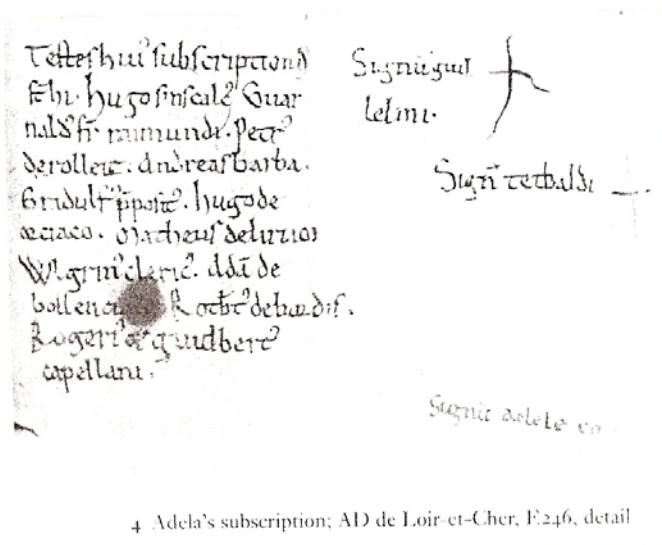 Testes hui᷒ subscription͛
st̄ hi. hugo sinscalc᷒ Guar
nald᷒ fr̄ raimundi. Petr᷒
de rolleit. Andreas barba.
Gradulf᷒ p̄posit᷒. hugo de
æciaco. Matheus de
Wlgrin᷒ cleric᷒. Adā de
R otb̄t᷒ de bædis.
Roger᷒ & guidbert᷒
capellani.
Signū guil
lelmi.
Signū tetbaldi
Signū adele co
4 Adela's subscription; AD de Loir-et-Cher, F.246, detail